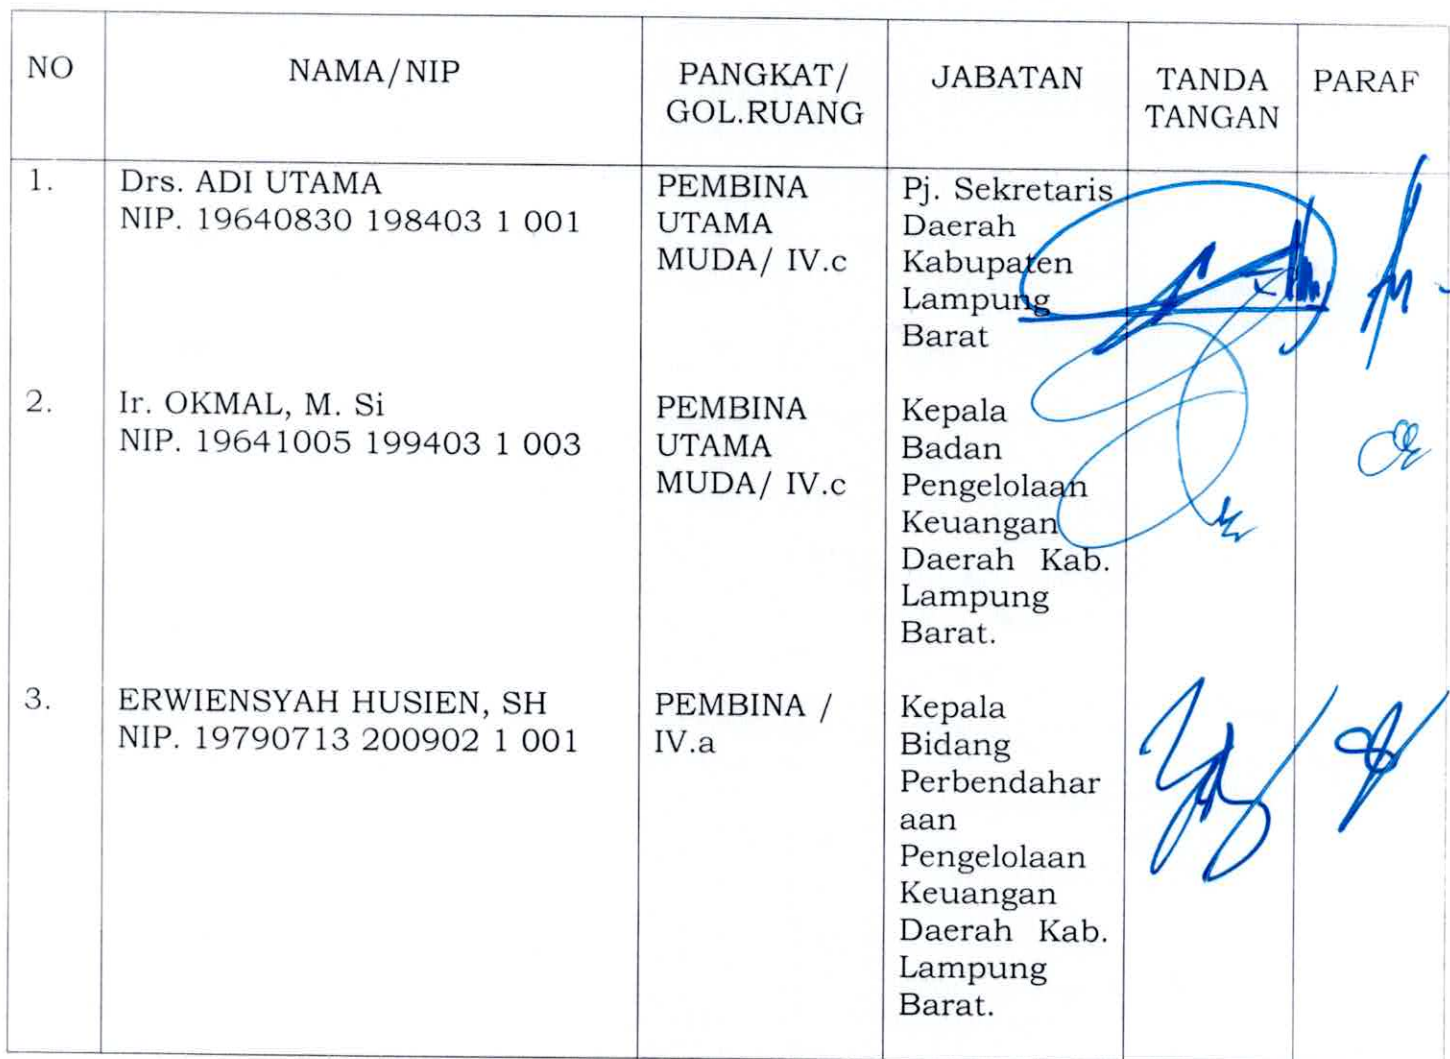 NO
NAMA/NIP
PANGKAT/
GOL.RUANG
JABATAN
TANDA
TANGAN
PARAF
1.
Drs. ADI UTAMA
NIP. 19640830 198403 1 001
PEMBINA
UTAMA
MUDA/ IV.c
Pj. Sekretaris
Daerah
Kabupaten
Lampung
Barat
2.
Ir. OKMAL, M. Si
NIP. 19641005 199403 1 003
PEMBINA
UTAMA
MUDA/ IV.c
Kepala
Badan
Pengelolaan
Keuangan
Daerah Kab.
Lampung
Barat.
3.
ERWIENSYAH HUSIEN, SH
NIP. 19790713 200902 1 001
PEMBINA /
IV.a
Kepala
Bidang
Perbendahar
aan
Pengelolaan
Keuangan
Daerah Kab.
Lampung
Barat.